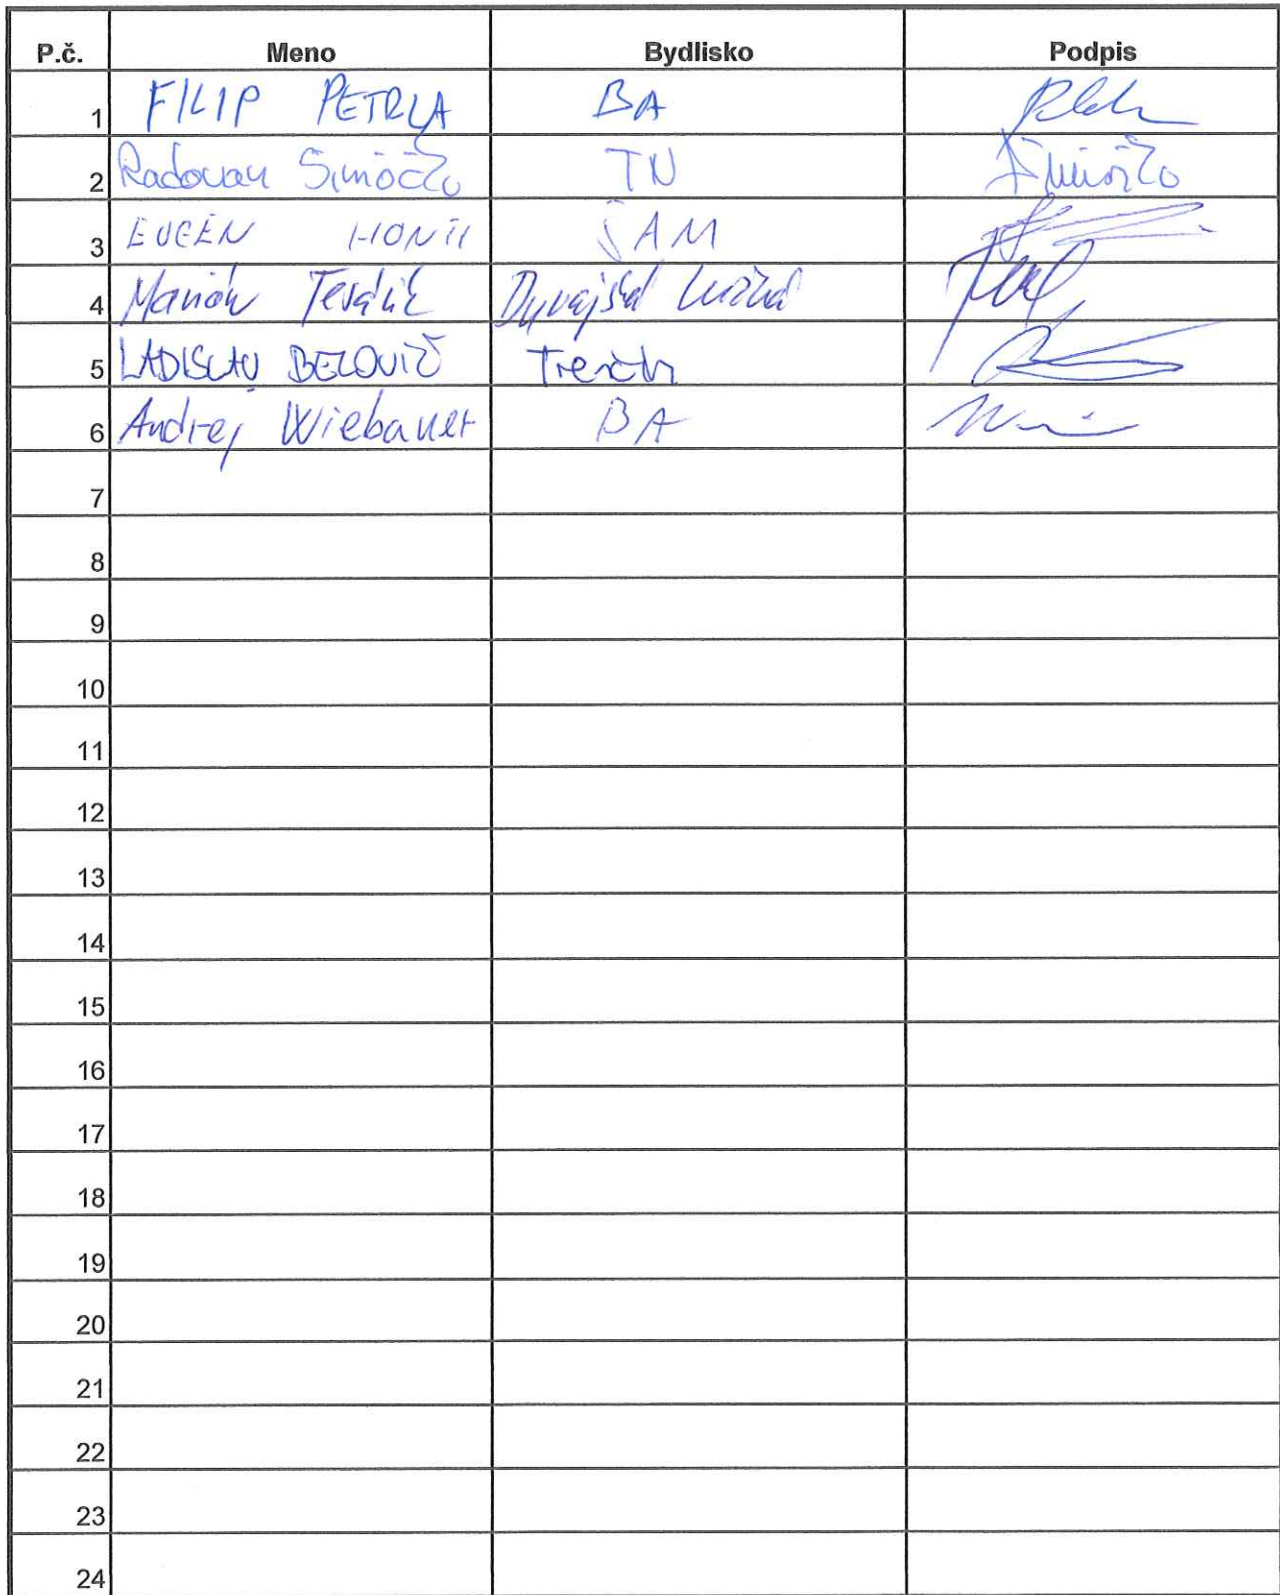 P.č. Meno Bydlisko Podpis
1 FILIP PETRLA BA
2 Radovan Simočko TN
3 EUGEN HONTI ŠAM
4 Marián
5 LADISLAV BEZOVIČ Trenčín
6 Andrej Wiebauer BA
7
8
9
10
11
12
13
14
15
16
17
18
19
20
21
22
23
24